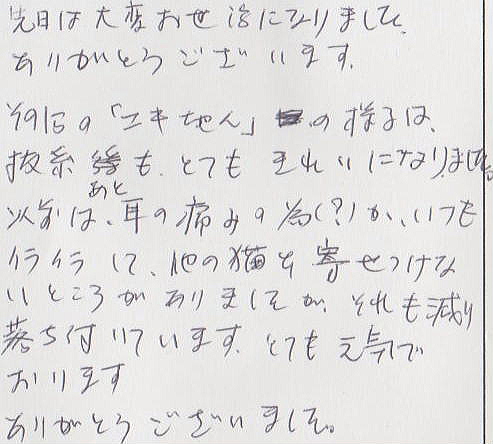 先日は大変お世話になりました。
ありがとうございます。
その后の「ユキちゃん」の様子は、
抜糸後も、とてもきれいになりました。
あと
以前は、耳の痛みの為(?)か、いつも
イライラして、他の猫を寄せつけな
いところがありましたが、それも減り
落ち付いています。とても元気で
おります
ありがとうございました。